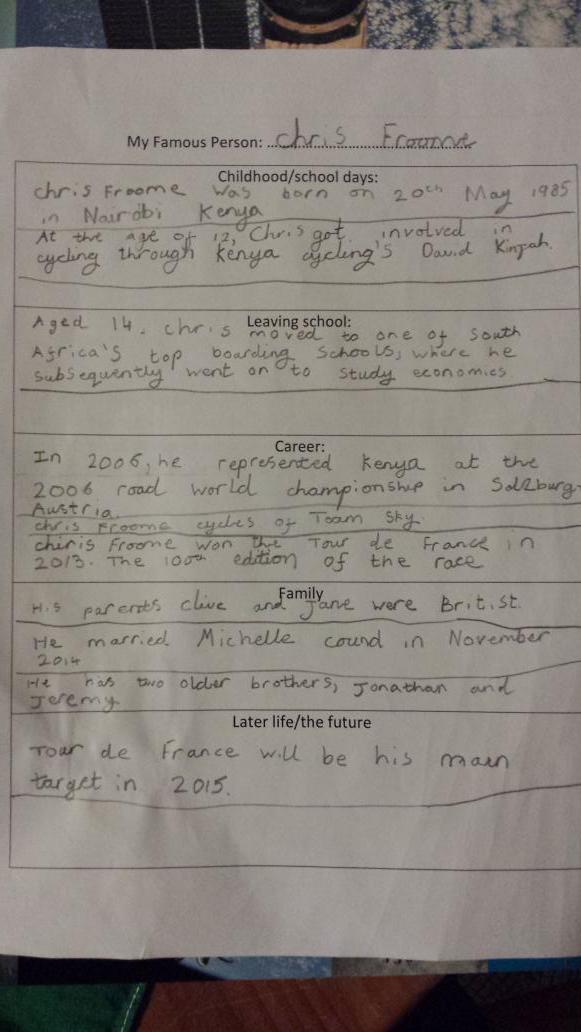 My Famous Person: ...Chris Froome
Childhood/school days:
Chris Froome was born on 20th May 1985
in Nairobi Kenya
At the age of 12, Chris got involved in
cycling through Kenya cycling's David Kinjah.
Leaving school:
Aged 14. Chris moved to one of South
Africa's top boarding schools, where he
subsequently went on to study economics.
Career:
In 2006, he represented Kenya at the
2006 road world championship in Salzburg
Austria.
Chris Froome cycles of Team Sky.
Chiris Froome won the Tour de France in
2013. The 100th edition of the race
Family
His parents clive and Jane were Britist.
He married Michelle cound in November
2014
He has two older brothers, Jonathan and
Jeremy
Later life/the future
Tour de France will be his main
target in 2015.